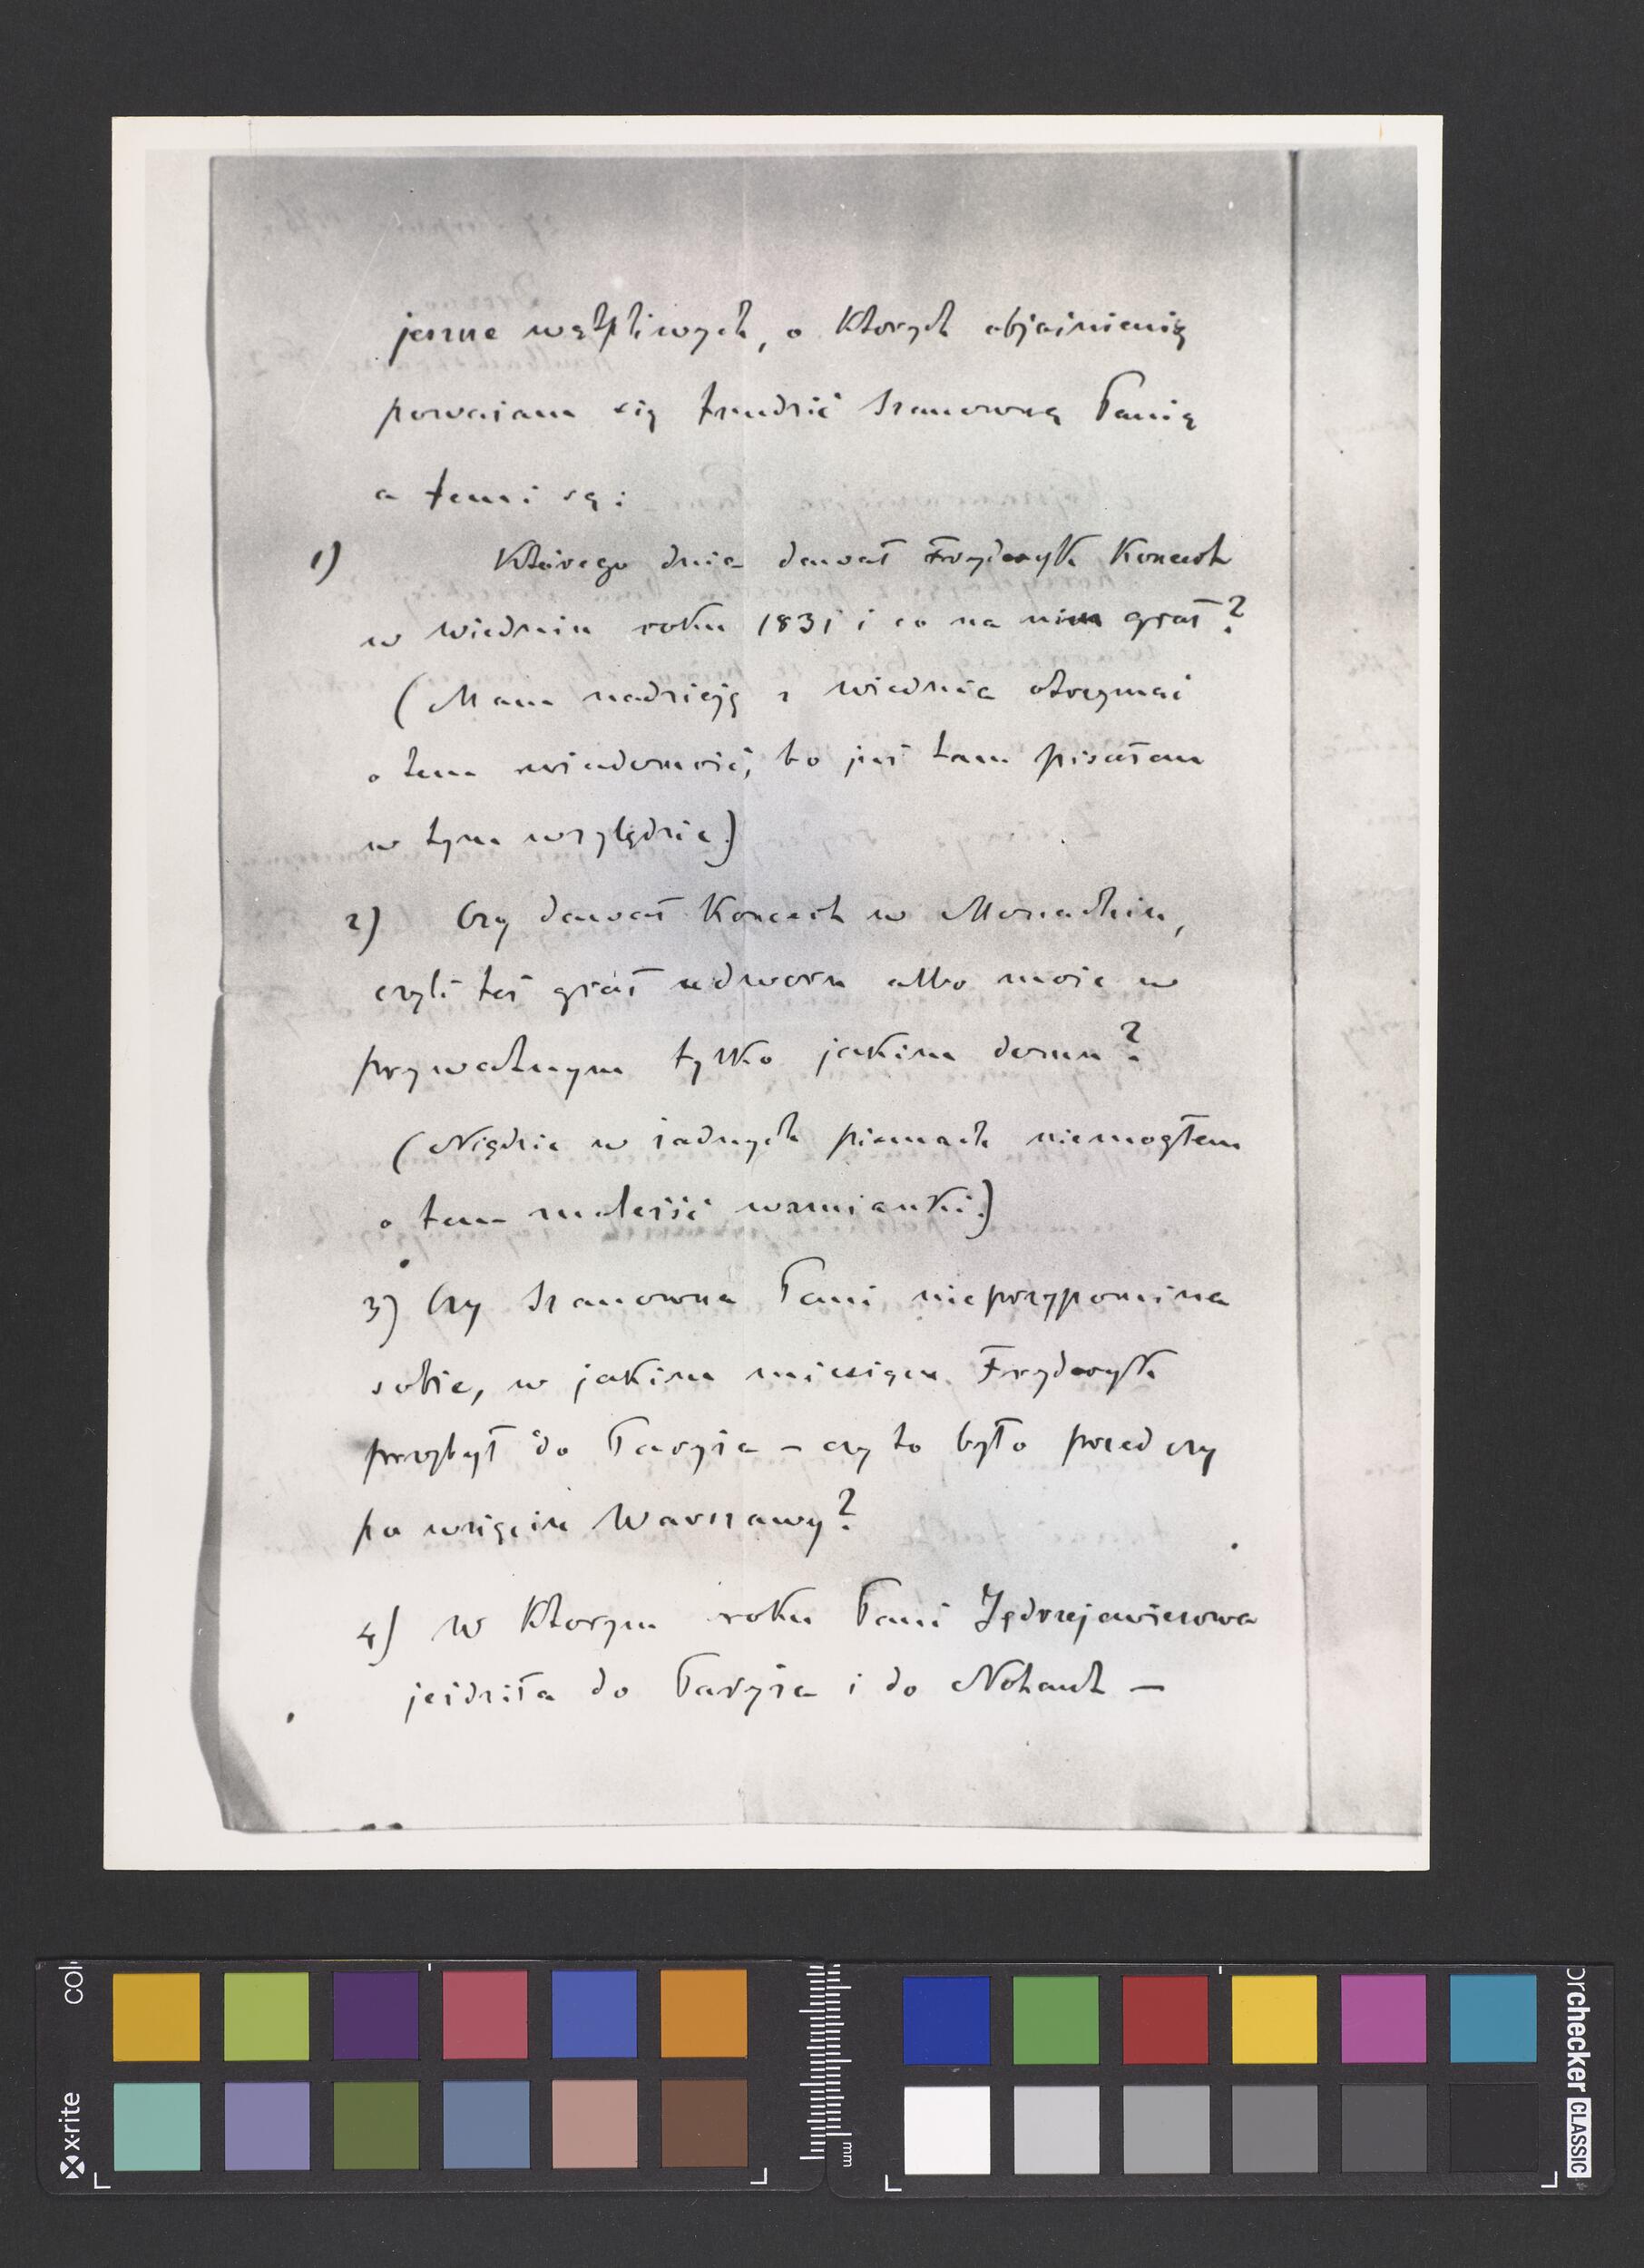 jeszcze wątpliwych, o których objaśnienię
poważam się trudzić Szanowną Panią
a temi są:
1) Którego dnia dawał Fryderyk Koncert
w Wiedniu roku 1831 i co na nim grał?
(Mam nadzieję z Wiednia otrzymać
o tem wiadomość, bo już tam pisałem
w tym względzie)
2) Czy dawał Koncert w Monachiu,
czyli też grał u dworu albo może w
prywatnym tylko jakim domu?
(Nigdzie w żadnych pismach niemogłem
o tem znaleźść wzmianki.)
3) Czy Szanowna Pani nieprzypomina
sobie, w jakim miesiącu Fryderyk
przybył do Paryża – czy to było przed czy
po wzięciu Warszawy?
4) W którym roku Pani Jędrzejewiczowa
jeździła do Paryża i do Nohant –
x-rite
col
mm
orchecker CLASSIC